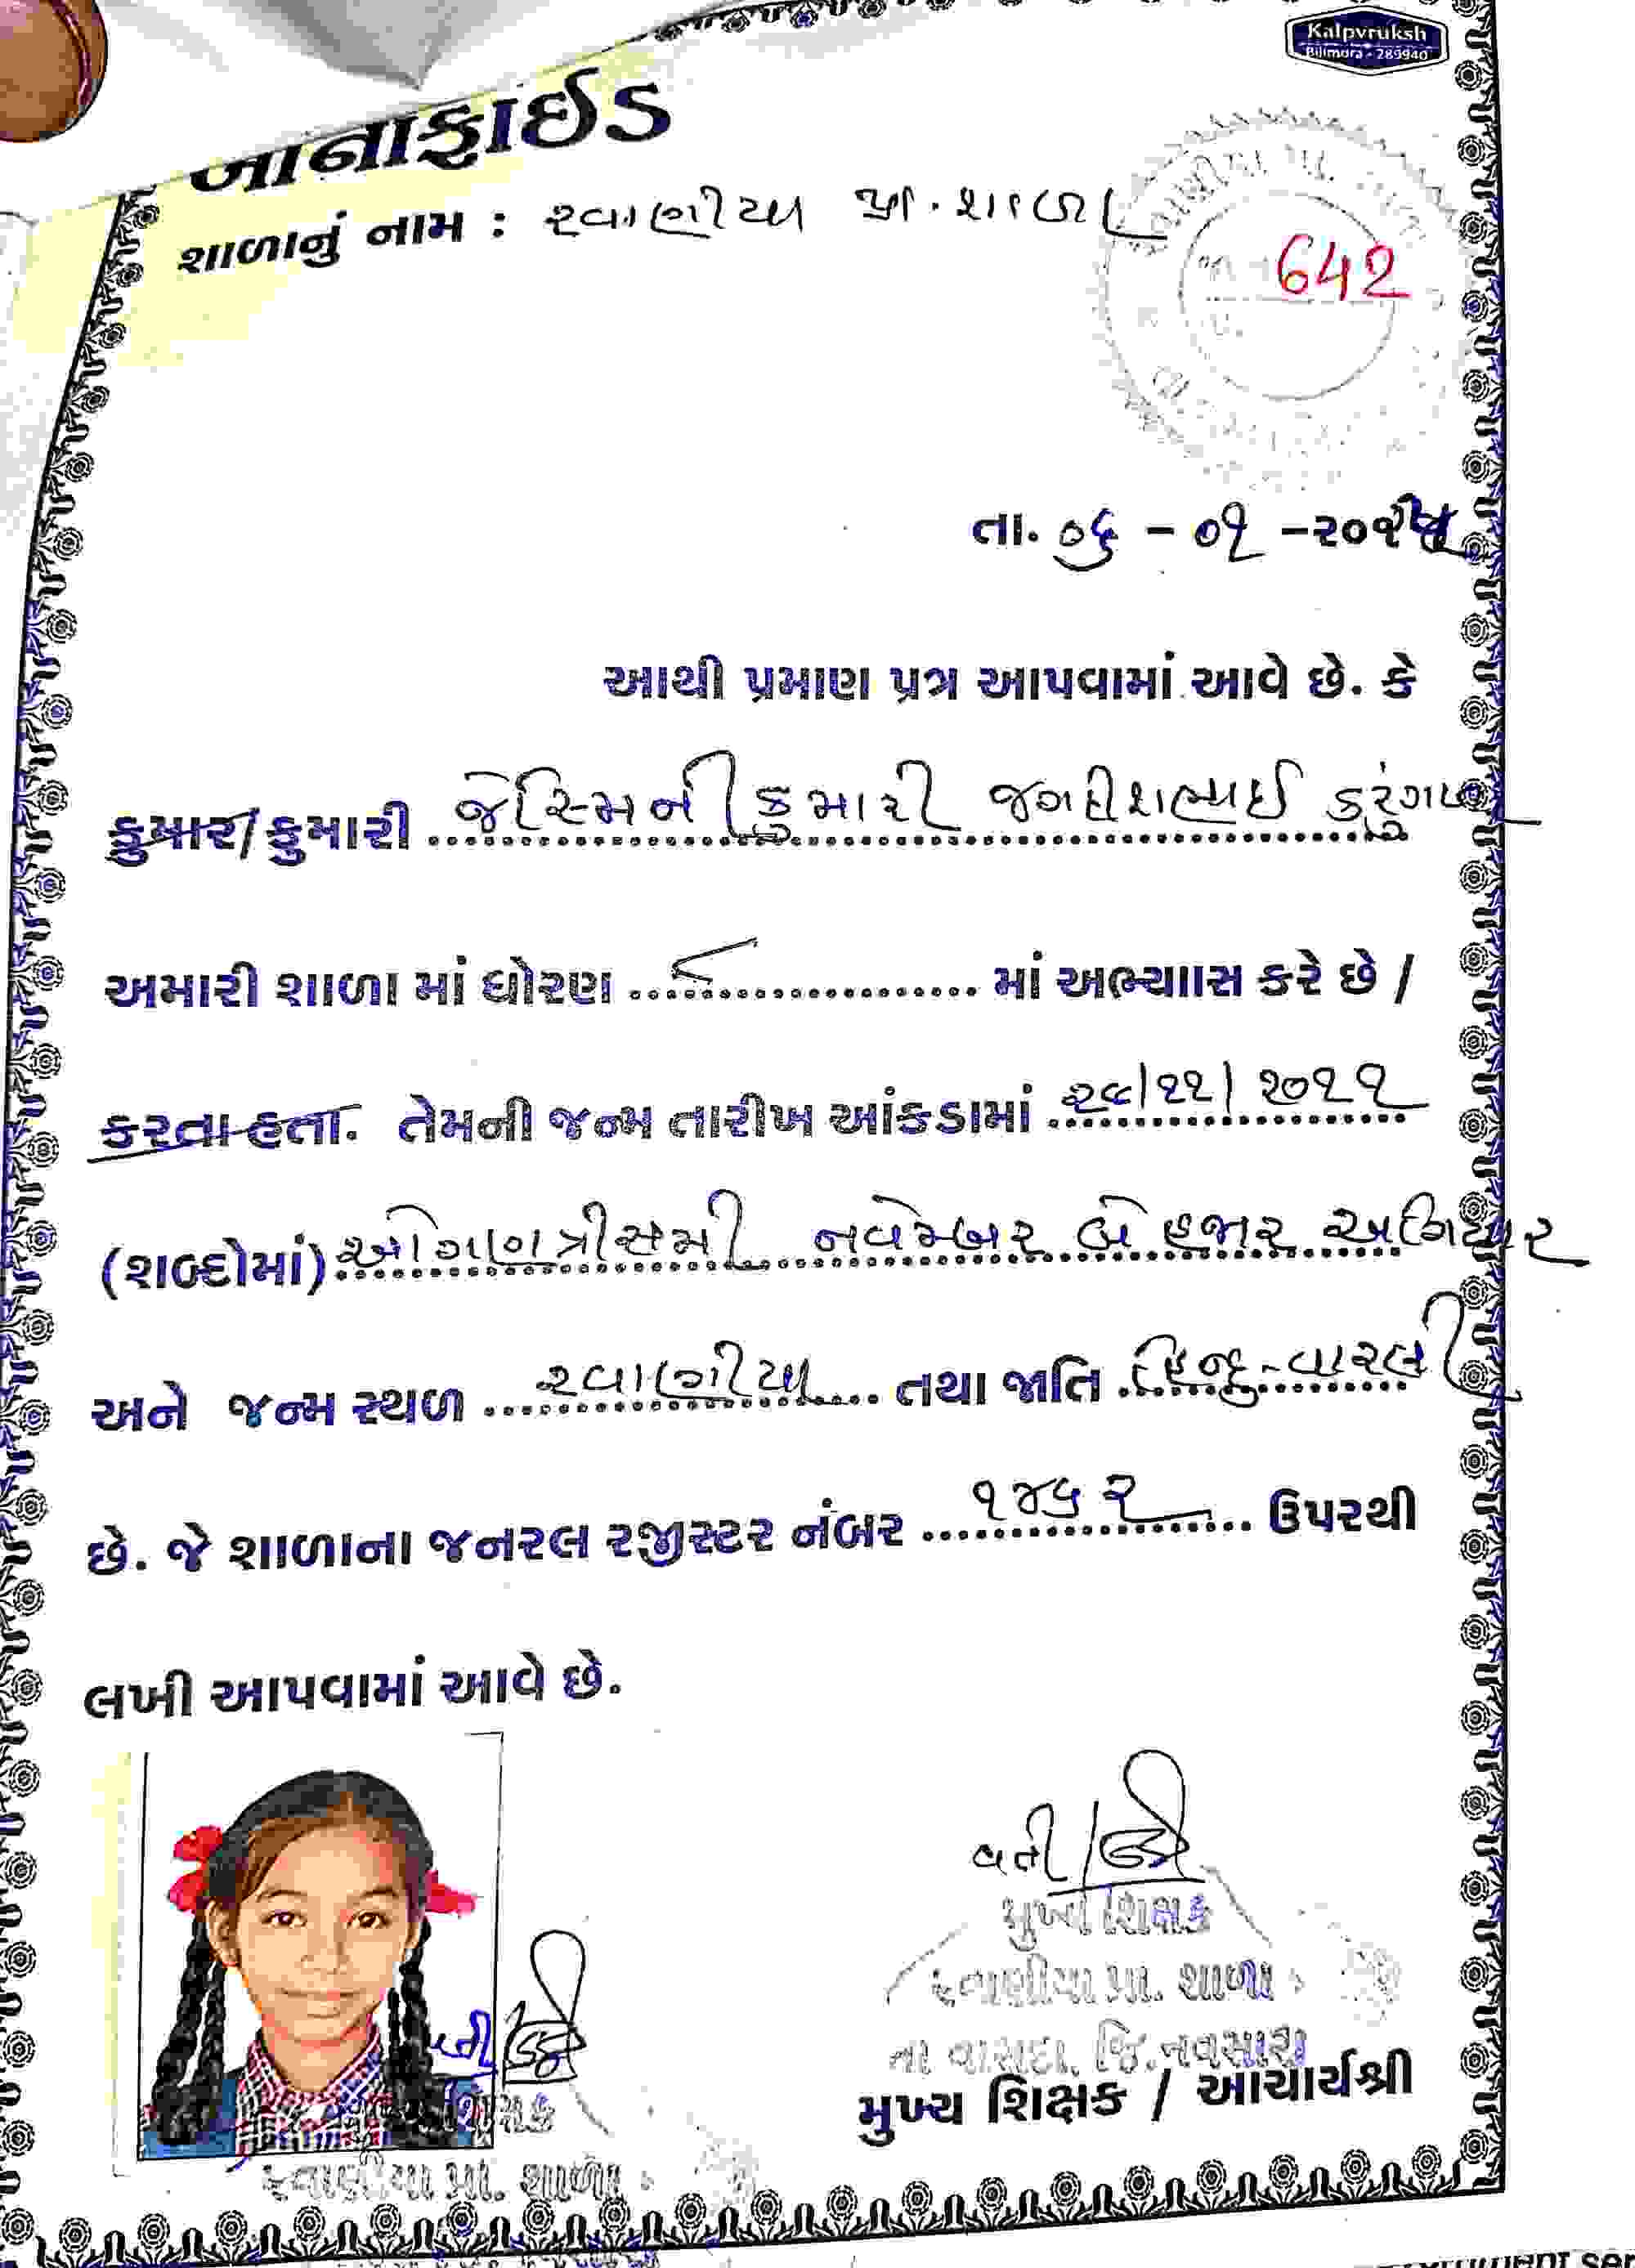 Kalpvruksh
Bilimora - 289940
બોનાફાઈડ
શાળાનું નામ : રવાણીયા પ્રા. શાળા
642
તા. ૦૬ - ૦૧ -૨૦૨૫
આથી પ્રમાણ પત્ર આપવામાં આવે છે. કે
કુમાર/કુમારી જેસ્મિનીકુમારી જગદીશભાઈ કુરંગળ
અમારી શાળા માં ધોરણ ૮ માં અભ્યાસ કરે છે /
કરતા હતા. તેમની જન્મ તારીખ આંકડામાં ૨૯/૧૧/૨૦૧૧
(શબ્દોમાં) ઓગણત્રીસમી નવેમ્બર બે હજાર અગિયાર
અને જન્મ સ્થળ રવાણીયા તથા જાતિ હિન્દુ-વારલી
છે. જે શાળાના જનરલ રજીસ્ટર નંબર ૧૪૬૨ ઉપરથી
લખી આપવામાં આવે છે.
વતી
મુખ્ય શિક્ષક
રવાણીયા પ્રા. શાળા
તા વાંસદા, જિ.નવસારી
મુખ્ય શિક્ષક / આચાર્યશ્રી
વતી
રવાણીયા પ્રા. શાળા